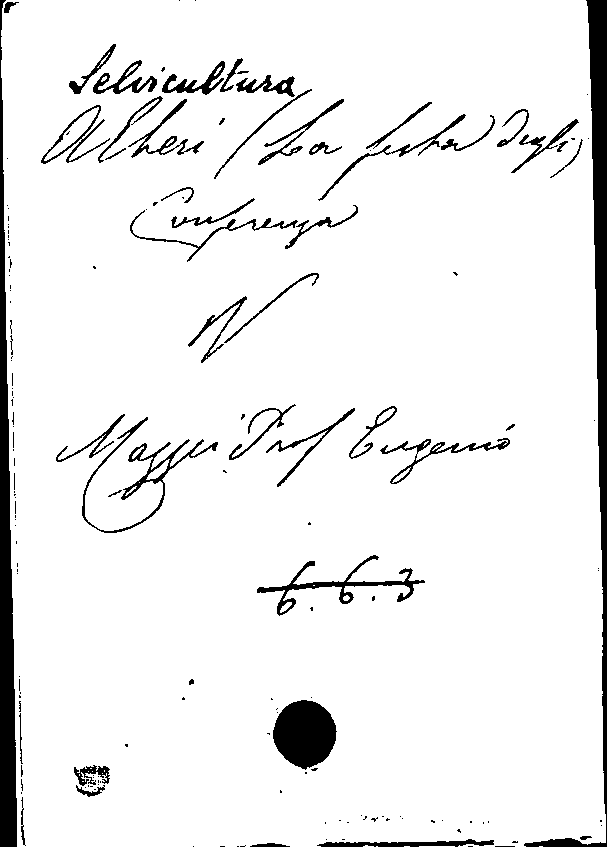 Selvicultura
Alberi (La festa degli)
Conferenza
V
Maggi Prof Eugenio
6. 6. 3